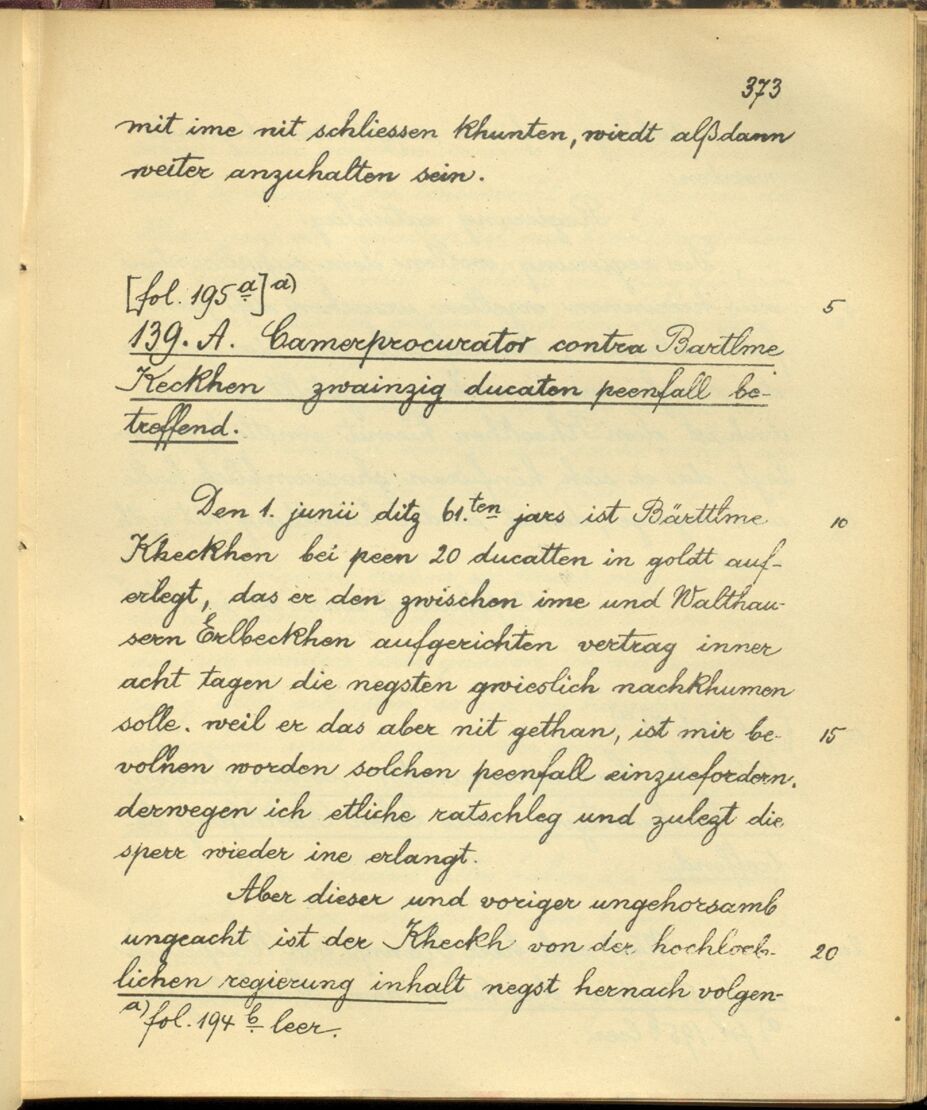 373
mit ime nit schliessen khunten, wirdt alßdann
weiter anzuhalten sein.
[fol. 195ª]ª⁾
5
139. A. Camerprocurator contra Bartlme
Keckhen zwainzig ducaten peenfall be-
treffend.
Den 1. junii ditz 61.ten jars ist Bärttlme 10
Kheckhen bei peen 20 ducatten in goldt auf-
erlegt, das er den zwischen ime und Walthau-
sern Erlbeckhen aufgerichten vertrag inner
acht tagen die negsten gwieslich nachkhumen
solle. weil er das aber nit gethan, ist mir be- 15
volhen worden solchen peenfall einzuefordern.
derwegen ich etliche ratschleg und zulezt die
sperr wieder ine erlangt.
Aber dieser und voriger ungehorsamb
ungeacht ist der Kheckh von der hochloeb- 20
lichen regierung inhalt negst hernach volgen-
a) fol. 194 b leer.